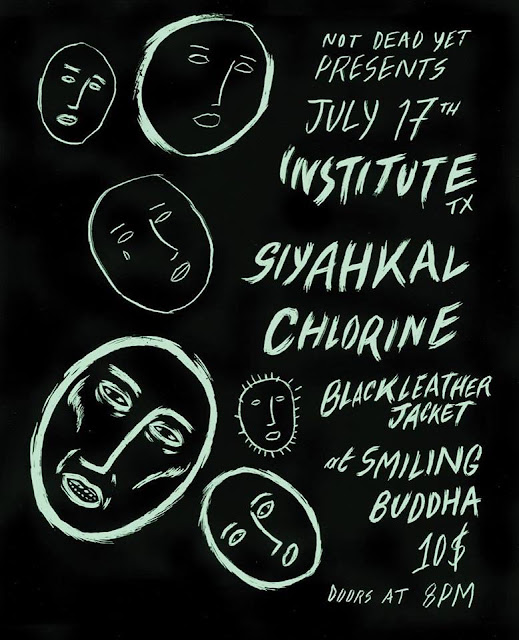 NOT DEAD YET
PRESENTS
JULY 17TH
INSTITUTE
TX
SIYAHKAL
CHLORINE
BLACK LEATHER
JACKET
at SMILING
BUDDHA
10$
DOORS AT 8PM